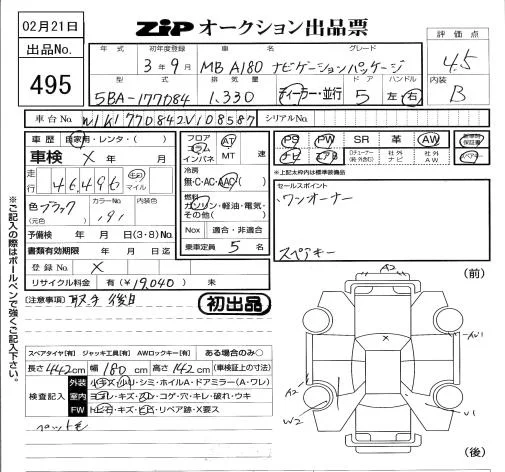 02月21日
ZIP オークション出品票
出品No.
495
評価点
4.5
内装
B
年式 初年度登録 車名 グレード
3年9月 MB A180 ナビゲーションパッケージ
型式 排気量 ドア ハンドル
5BA-177084 1,330 ディーラー・並行 5 左・右
車台No. W1K1770842V108587 シリアルNo.
車歴 自家用・レンタ・( )
車検 X 年 月
走行 46,496 km マイル
色 ブラック (元色) カラーNo. 191 内装色
予備検 年 月 日(3・8)No.
書類有効期限 年 月 日迄
登録No. X
リサイクル料金 有(¥19,040)・無
フロア コラム インパネ AT MT 速
冷房 無・C・AC・AAC( )
燃料 ガソリン・軽油・電気・その他( )
Nox 適合・非適合
乗車定員 5 名
PS PW SR 革 AW
ナビ エアB 社外ナビ 社外AW
新車時保証書
スペアキー
*上記太枠内は標準装備品
セールスポイント
ワンオーナー
スペアキー
※ご記入の際はボールペンで強くご記入下さい。
(注意事項) 取手 後日
初出品
スペアタイヤ[有] ジャッキ工具[有] AWロックキー[有] ある場合のみ○
長さ 442cm 幅 180cm 高さ 142cm (車検証上の寸法)
検査記入
外装 小キズ・小リ・シミ・ホイルA・ドアミラー(A・ワレ)
室内 ヨゴレ・キズ・スレ・コゲ・穴・キレ・破れ・ウキ
FW トビ石・キズ・ヒビ・リペア跡・X要ス
ペット毛
(前)
A2
X
AW1
A2
W2
U1
A2
(後)